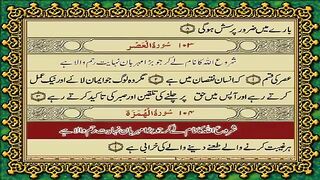 بارے میں ضرور پرسش ہوگی
۱۰۳ سُورَةُ الْعَصْر
شروع اللہ کا نام لے کر جو بڑا مہربان نہایت رحم والا ہے
عصر کی قسم کہ انسان نقصان میں ہے مگر وہ لوگ جو ایمان لائے اور نیک عمل
کرتے رہے اور آپس میں حق پر چلنے کی تلقین اور صبر کی تاکید کرتے رہے
۱۰۴ سُورَةُ الْهُمَزَة
شروع اللہ کا نام لے کر جو بڑا مہربان نہایت رحم والا ہے
ہر غیبت کرنے والے طعنے دینے والے کی خرابی ہے